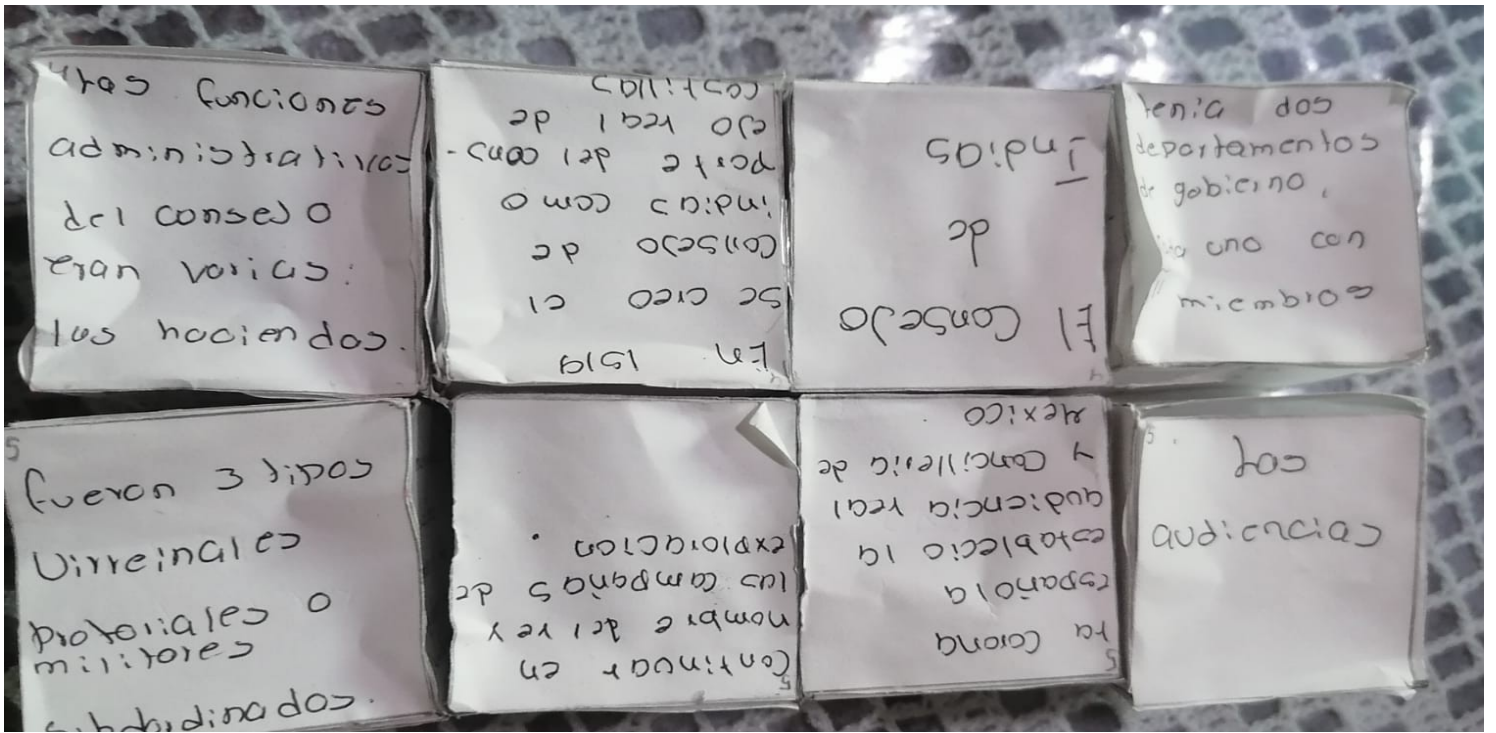 funciones
administrativas
del consejo
eran varias:
las haciendas.
En 1519
se creo el
consejo de
indias como
parte del cons-
ejo real de
castillas
El Consejo
de
Indias
tenia dos
departamentos
de gobierno.
uno con
miembros
5
fueron 3 tipos
Virreinales
pretoriales o
militares
subdordinados.
5
Continuar en
nombre del rey
las campañas de
exploracion.
5
ra Corona
española
establecio la
audiencia real
y Cancilleria de
Mexico.
5.
Las
audiencias